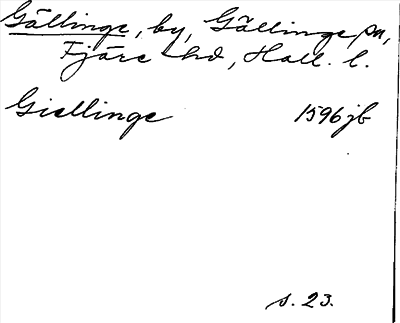 Gällinge, by, Gällinge sn,
Fjäre hd, Hall. l.
Giellinge 1596 jb
s. 23.